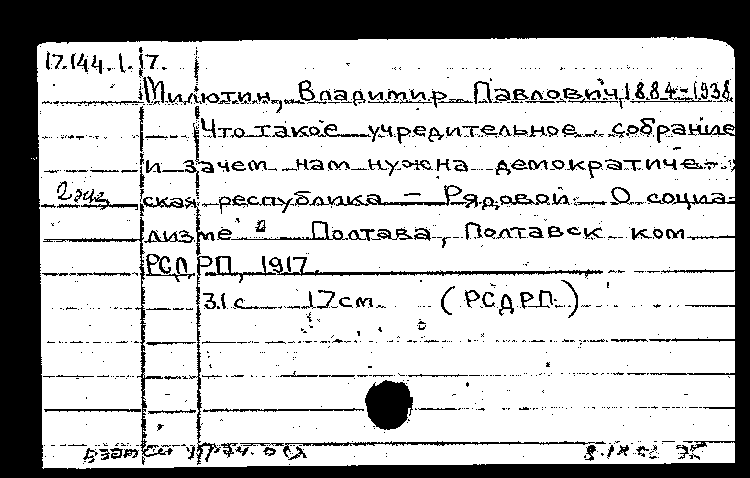 17.144.1.17.
Милютин, Владимир Павлович, 1884-1938
Что такое учредительное собрание
и зачем нам нужна демократиче-
2 экз
ская республика – Рядовой. О социа-
лизме. Полтава, Полтавск ком
РСДРП, 1917.
31 с 17 см. (РСДРП.)